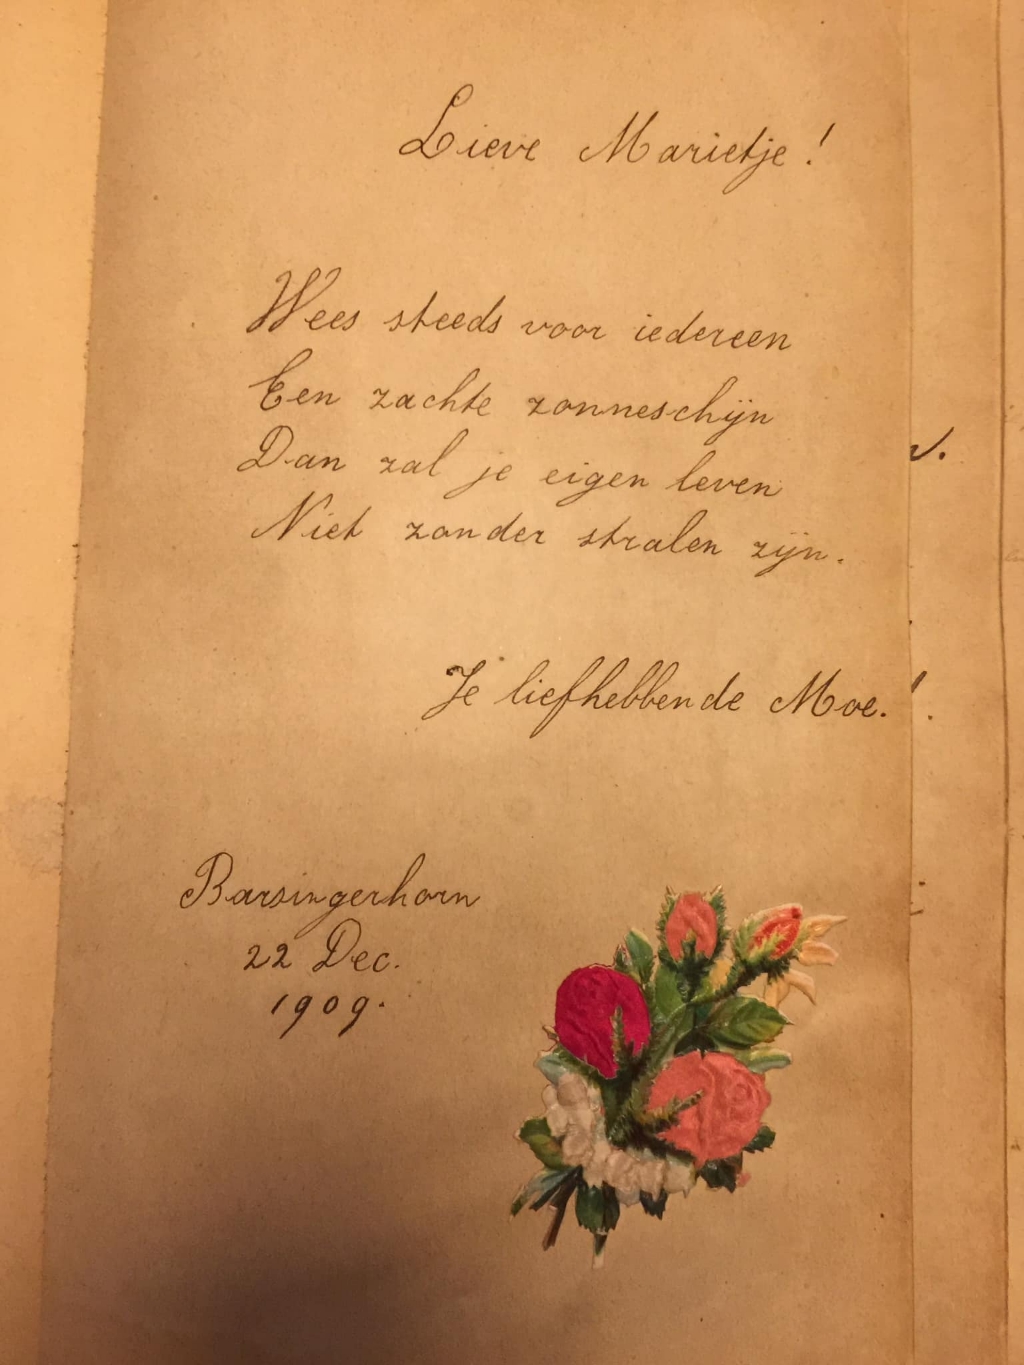 Lieve Marietje!
Wees steeds voor iedereen
Een zachte zonneschijn
Dan zal je eigen leven
Niet zonder stralen zijn.
Je liefhebbende Moe.
Barsingerhorn
22 Dec.
1909.